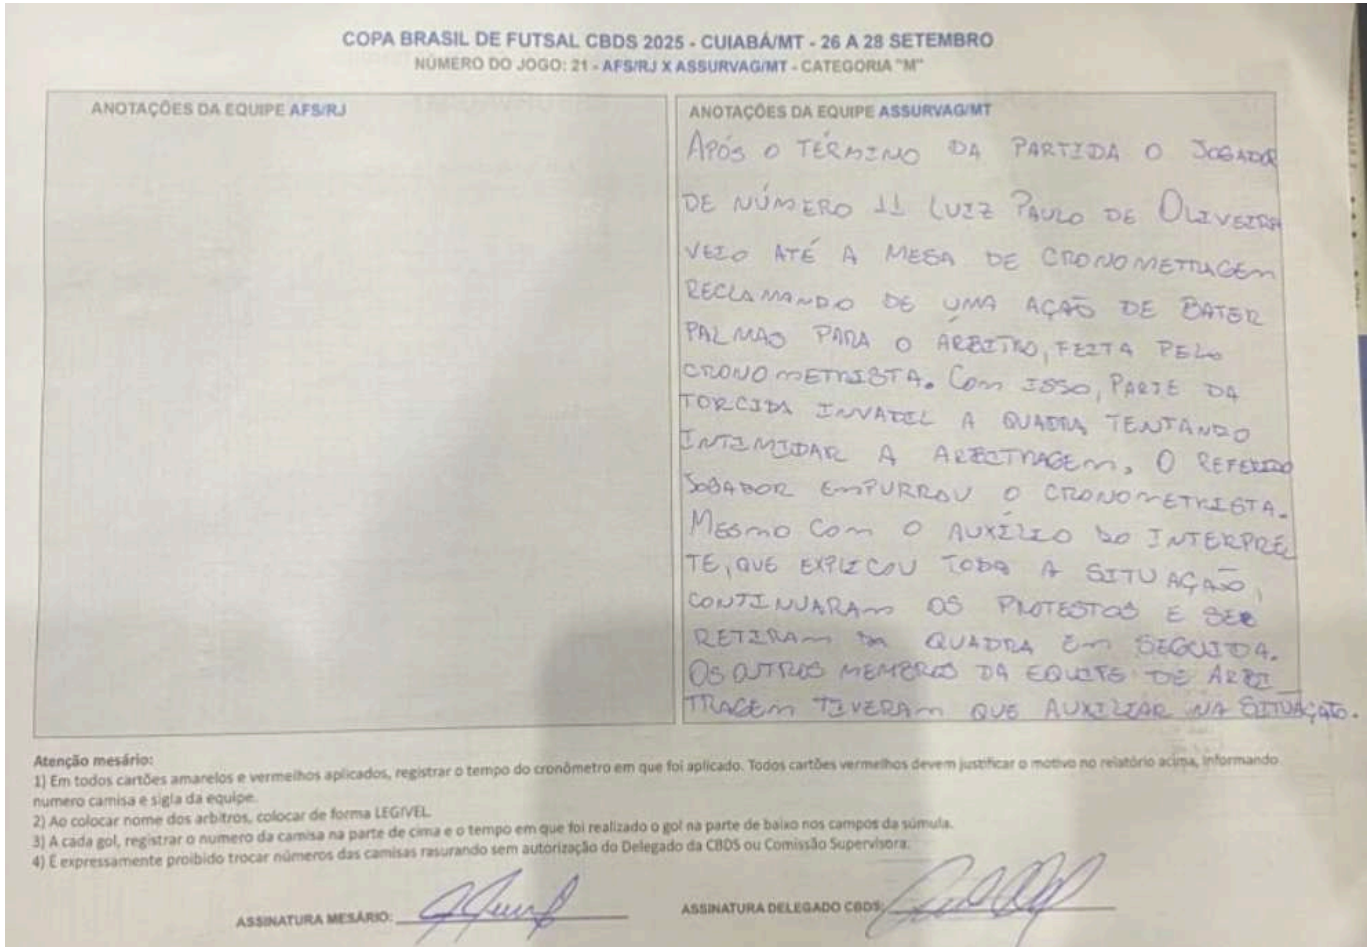 COPA BRASIL DE FUTSAL CBDS 2025 - CUIABÁ/MT - 26 A 28 SETEMBRO
NÚMERO DO JOGO: 21 - AFS/RJ X ASSURVAG/MT - CATEGORIA "M"
ANOTAÇÕES DA EQUIPE AFS/RJ
ANOTAÇÕES DA EQUIPE ASSURVAG/MT
APÓS O TÉRMINO DA PARTIDA O JOGADOR
DE NÚMERO 11 LUIZ PAULO DE OLIVEIRA
VEIO ATÉ A MESA DE CRONOMETRAGEM
RECLAMANDO DE UMA AÇÃO DE BATER
PALMAS PARA O ÁRBITRO, FEITA PELO
CRONOMETRISTA. COM ISSO, PARTE DA
TORCIDA INVADIL A QUADRA TENTANDO
INTIMIDAR A ARBITRAGEM. O REFERIDO
JOGADOR EMPURROU O CRONOMETRISTA.
MESMO COM O AUXÍLIO DO INTERPRE
TE, QUE EXPLICOU TODA A SITUAÇÃO,
CONTINUARAM OS PROTESTOS E SER
RETIRAM DA QUADRA EM SEGUIDA.
OS OUTROS MEMBROS DA EQUIPE DE ARBI
TRAGEM TIVERAM QUE AUXILIAR NA SITUAÇÃO.
Atenção mesário:
1) Em todos cartões amarelos e vermelhos aplicados, registrar o tempo do cronômetro em que foi aplicado. Todos cartões vermelhos devem justificar o motivo no relatório acima, informando
numero camisa e sigla da equipe.
2) Ao colocar nome dos arbitros, colocar de forma LEGIVEL.
3) A cada gol, registrar o numero da camisa na parte de cima e o tempo em que foi realizado o gol na parte de baixo nos campos da súmula.
4) É expressamente proibido trocar números das camisas rasurando sem autorização do Delegado da CBDS ou Comissão Supervisora.
ASSINATURA MESÁRIO:
ASSINATURA DELEGADO CBDS: